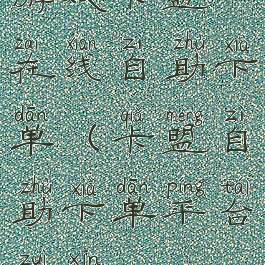 zài xiàn zì zhù xià
在线自助下
dān qiǎ méng zì
单(卡盟自
zhù xià dān píng tái
助下单平台